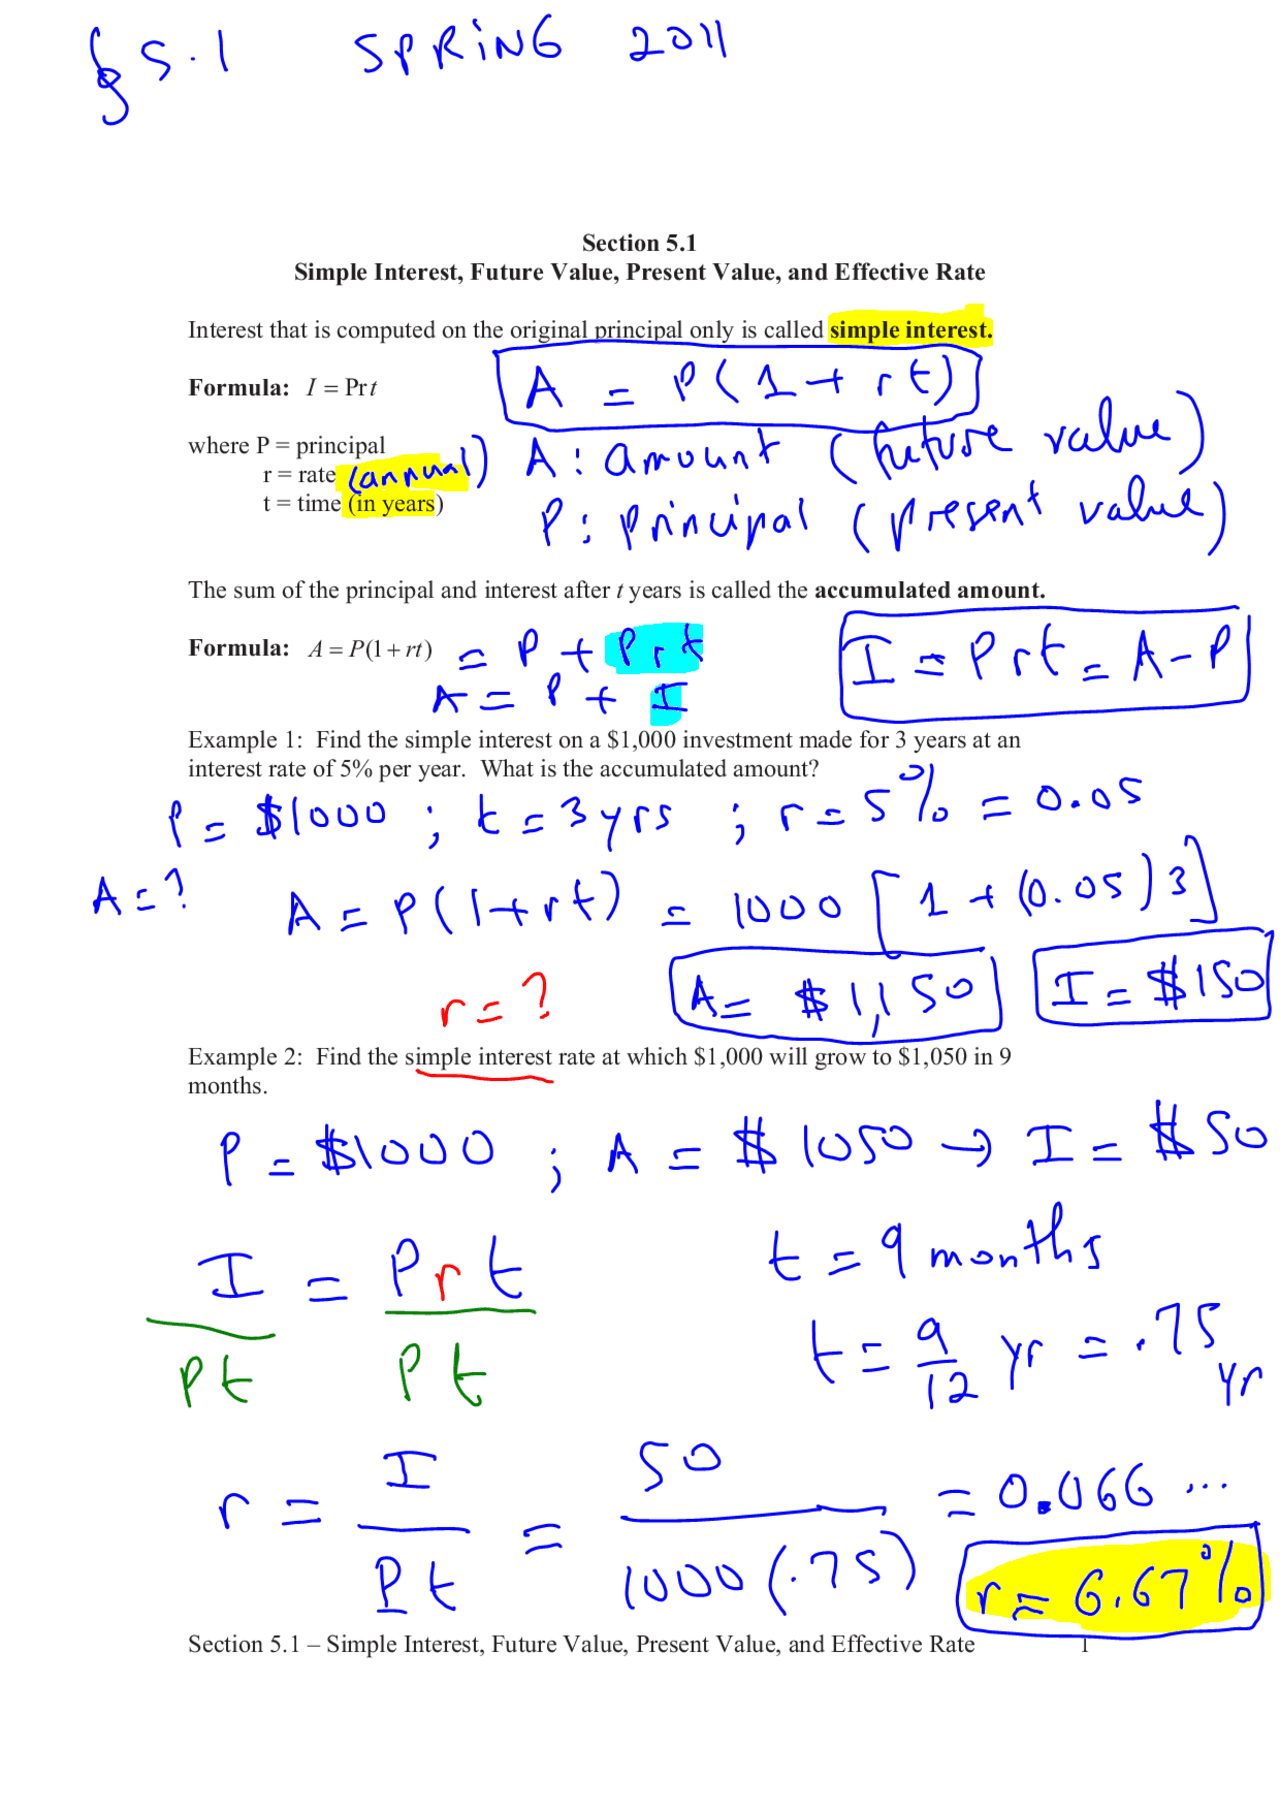 § 5.1 SPRiNG 2011
Section 5.1
Simple Interest, Future Value, Present Value, and Effective Rate
Interest that is computed on the original principal only is called simple interest.
Formula: I = Prt
A = P(1 + rt)
where P = principal
r = rate (annual)
t = time (in years)
A : amount (future value)
P : principal (present value)
The sum of the principal and interest after t years is called the accumulated amount.
Formula: A = P(1 + rt) = P + Prt
A = P + I
I = Prt = A - P
Example 1: Find the simple interest on a $1,000 investment made for 3 years at an
interest rate of 5% per year. What is the accumulated amount?
P = $1000 ; t = 3 yrs ; r = 5% = 0.05
A = ? A = P(1+rt) = 1000 [1 + (0.05)3]
A = $1,150 I = $150
r = ?
Example 2: Find the simple interest rate at which $1,000 will grow to $1,050 in 9
months.
P = $1000 ; A = $1050 → I = $50
t = 9 months
I / Pt = Prt / Pt
t = 9/12 yr = .75 yr
r = I / Pt = 50 / 1000(.75) = 0.066 ...
r ≈ 6.67%
Section 5.1 – Simple Interest, Future Value, Present Value, and Effective Rate 1